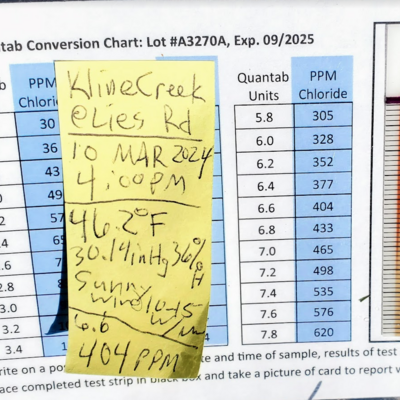 tab Conversion Chart: Lot #A3270A, Exp. 09/2025
PPM
Chloride
30
36
43
49
57
3.0
3.2
3.4
Kline Creek
@ Lies Rd
10 MAR 2024
4:00PM
46.2°F
30.14inHg 36%
H
Sunny
Wind 10-15
6.6
404 PPM
Quantab Units PPM Chloride
5.8 305
6.0 328
6.2 352
6.4 377
6.6 404
6.8 433
7.0 465
7.2 498
7.4 535
7.6 576
7.8 620
rite on a po
te and time of sample, results of test
ace completed test strip in black box and take a picture of card to report w